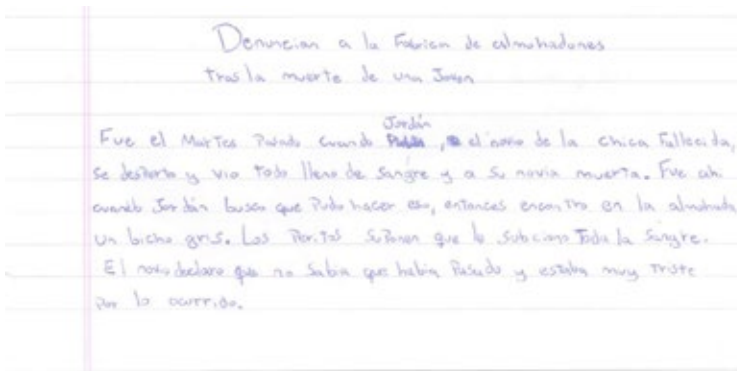 Denuncian a la Fabrica de almohadones
tras la muerte de una Joven
Jordán
Fue el Martes Pasado cuando , el novio de la chica Fallecida,
se desperto y vio todo lleno de sangre y a su novia muerta. Fue ahi
cuando Jordán busco que Pudo hacer eso, entonces encontro en la almohada
un bicho gris. Los Peritos suponen que le subciono Toda la sangre.
El novio declaro que no sabia que habia Pasado y estaba muy triste
por lo ocurrido.